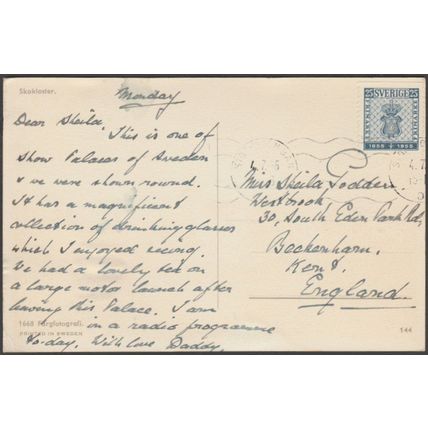 Skokloster.
Monday
Dear Sheila,
This is one of
Show Palaces of Sweden
& we were shown round.
It has a magnificent
collection of drinking glasses
which I enjoyed seeing.
We had a lovely tea on
a large motor launch after
leaving this Palace. I am
in a radio programme
to-day. With love Daddy.
1668 Färgfotografi.
PRINTED IN SWEDEN
25 SVERIGE 25
1855 1955
Miss Sheila Todden.
Westbrook
30, South Eden Park Rd,
Beckenham,
Kent.
England.
144